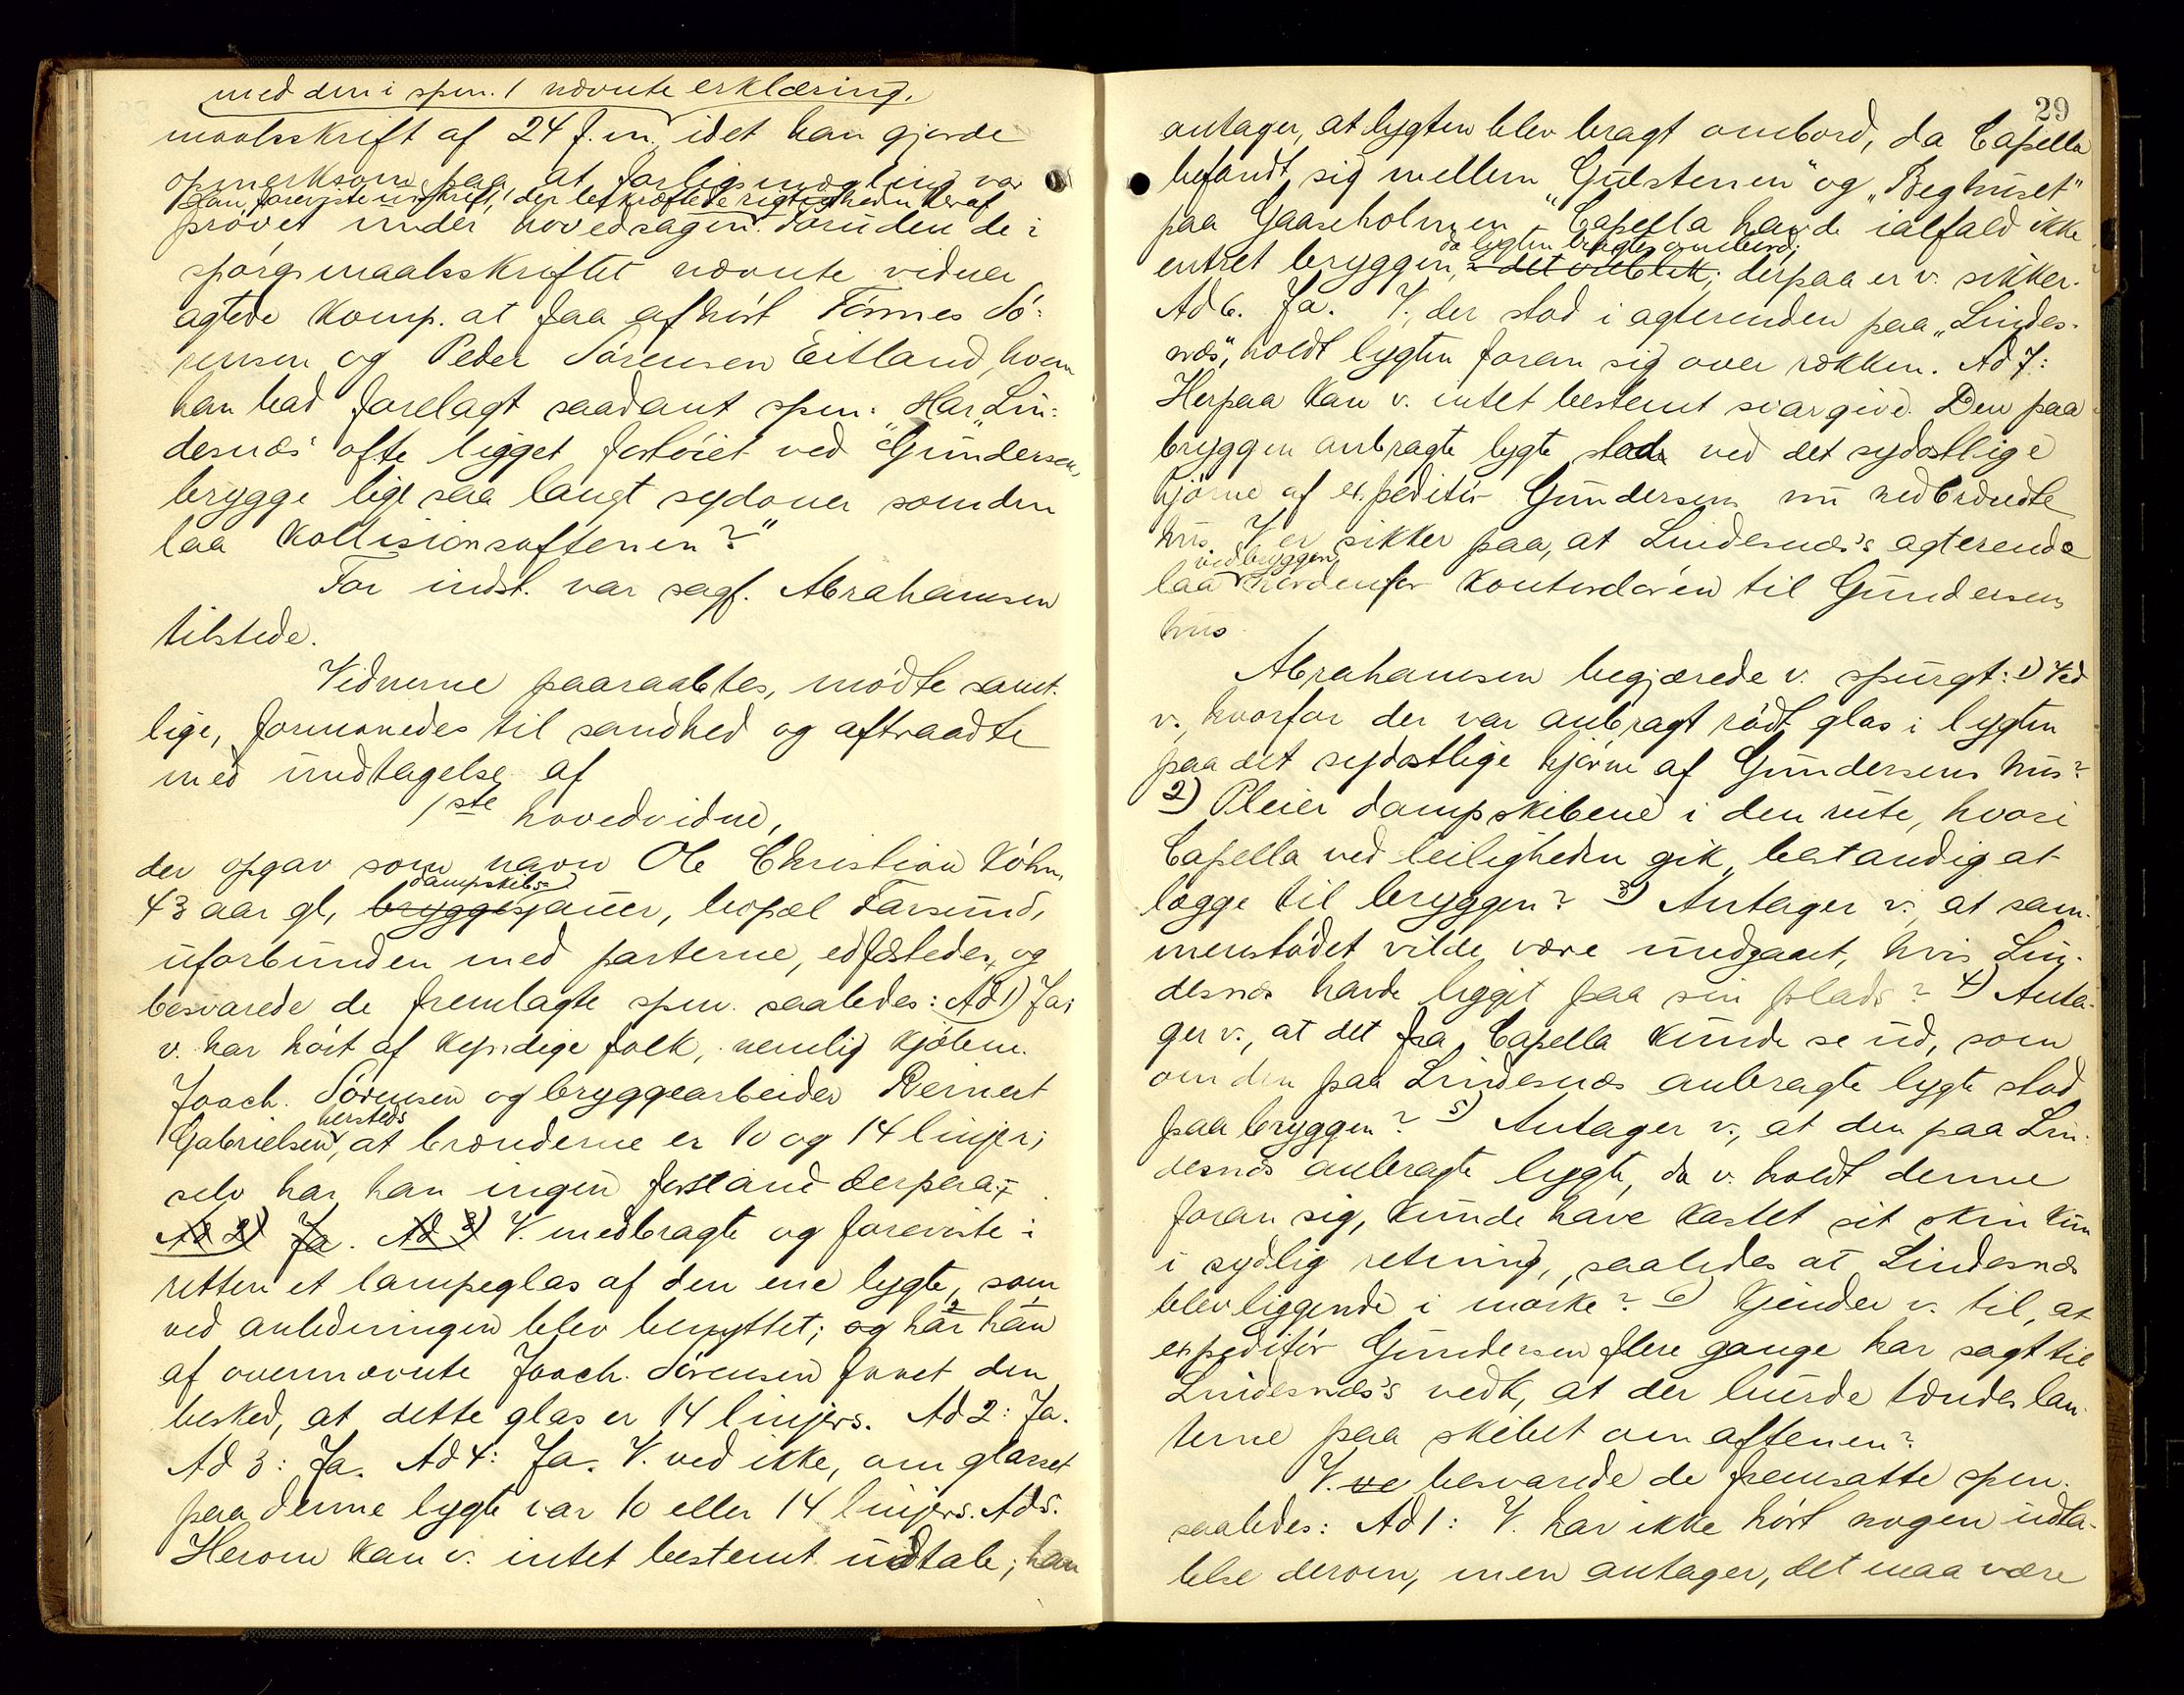 med den i spm. 1 nævnte erklæring.
maalsskrift af 24 f. m., idet han gjorde
opmerksom paa, at forligsmægling var
Han foreviste udskrift, der bekræftede rigtigheden heraf
prøvet under hovedsagen. Foruden de i
spørgsmaalsskriftet nævnte vidner
agtede komp. at faa afhørt Tønnes Sø-
rensen og Peder Sørensen Eitland, hvem
han bad forelagt saadant spm: "Har "Lin-
desnæs" ofte ligget fortøiet ved "Gundersens
brygge lige saa langt sydover som den
laa kollisionsaftenen?"
For indst. var sagf. Abrahamsen
tilstede.
Vidnerne paaraabtes, mødte samt-
lige, formanedes til sandhed og aftraadte
med undtagelse af
1ste hovedvidne,
der opgav som navn Ole Christian Køhn,
dampskibs-
43 aar gl, bryggesjauer, bopæl Farsund,
uforbunden med parterne, edfæstedes, og
besvarede de fremlagte spm. saaledes: Ad 1) Ja;
v. har hørt af kyndige folk, nemlig kjøbm.
Joach. Sørensen og bryggearbeider Reinert
hersteds
Gabrielsen, at brænderne er 10 og 14 linjer;
selv har han ingen forstand derpaa.
Ad 2) Ja. Ad 3) V. medbragte og foreviste i
retten et lampeglas af den ene lygte, som
ved anledningen blev benyttet; og har han
af ovennævnte Joach. Sørensen faaet den
besked, at dette glas er 14 linjers. Ad 2: Ja.
Ad 3: Ja. Ad 4: Ja. V. ved ikke, om glasset
paa denne lygte var 10 eller 14 linjers. Ad 5.
Herom kan v. intet bestemt udtale; han
29
antager, at lygten blev bragt ombord, da Capella
befandt sig mellem "Gulstenen" og "Beghuset"
paa Gaaseholmen. "Capella havde ialfald ikke
da lygten bragtes ombord;
entret bryggen, i det øieblik; derpaa er v. sikker.
Ad 6. Ja. V., der stod i agterenden paa "Lindes-
næs", holdt lygten foran sig over rækken. Ad 7:
Herpaa kan v. intet bestemt svar give. Den paa
bryggen anbragte lygte stod ved det sydøstlige
hjørne af expeditør Gundersens nu nedbrændte
hus. V. er sikker paa, at Lindesnæs's agterende
ved bryggen
laa nordenfor kontordøren til Gundersens
hus.
Abrahamsen begjærede v. spurgt: 1) Ved
v., hvorfor der var anbragt rødt glas i lygten
paa det sydøstlige hjørne af Gundersens hus?
2) Pleier dampskibene i den rute, hvori
Capella ved leiligheden gik, bestandig at
lægge til bryggen? 3) Antager v. at sam-
menstødet vilde være undgaaet, hvis Lin-
desnæs havde ligget paa sin plads? 4) Anta-
ger v., at det fra Capella kunde se ud, som
om den paa Lindesnæs anbragte lygte stod
paa bryggen? 5) Antager v., at den paa Lin-
desnæs anbragte lygte, da v. holdt denne
foran sig, kunde have kastet sit skin kun
i sydlig retning, saaledes at Lindesnæs
blev liggende i mørke? 6) Kjender v. til, at
expeditør Gundersen flere gange har sagt til
Lindesnæs's vedk, at der burde tændes lan-
terne paa skibet om aftenen?
V. ve besvarede de fremsatte spm.
saaledes: Ad 1: V. har ikke hørt nogen udta-
lelse derom, men antager, det maa være